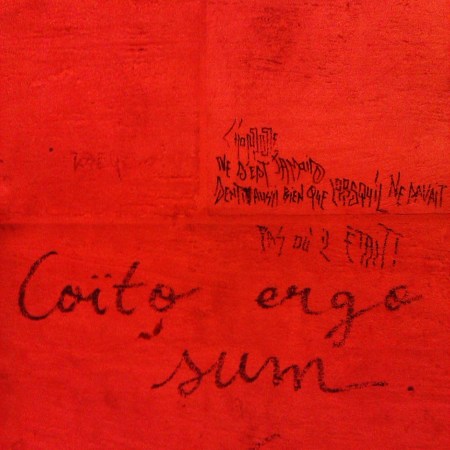 L'HOMME
NE S'EST JAMAIS
SENTI AUSSI BIEN QUE LORSQU'IL NE SAVAIT
PAS OÙ IL ETAIT!
Coïto ergo
sum.